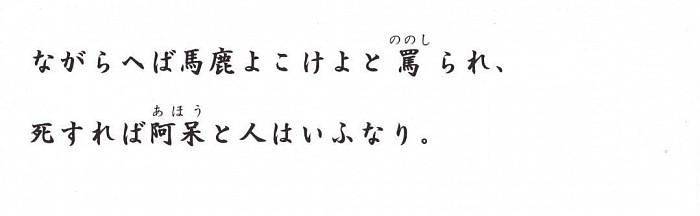 ながらへば馬鹿よこけよと罵られ、
死すれば阿呆と人はいふなり。